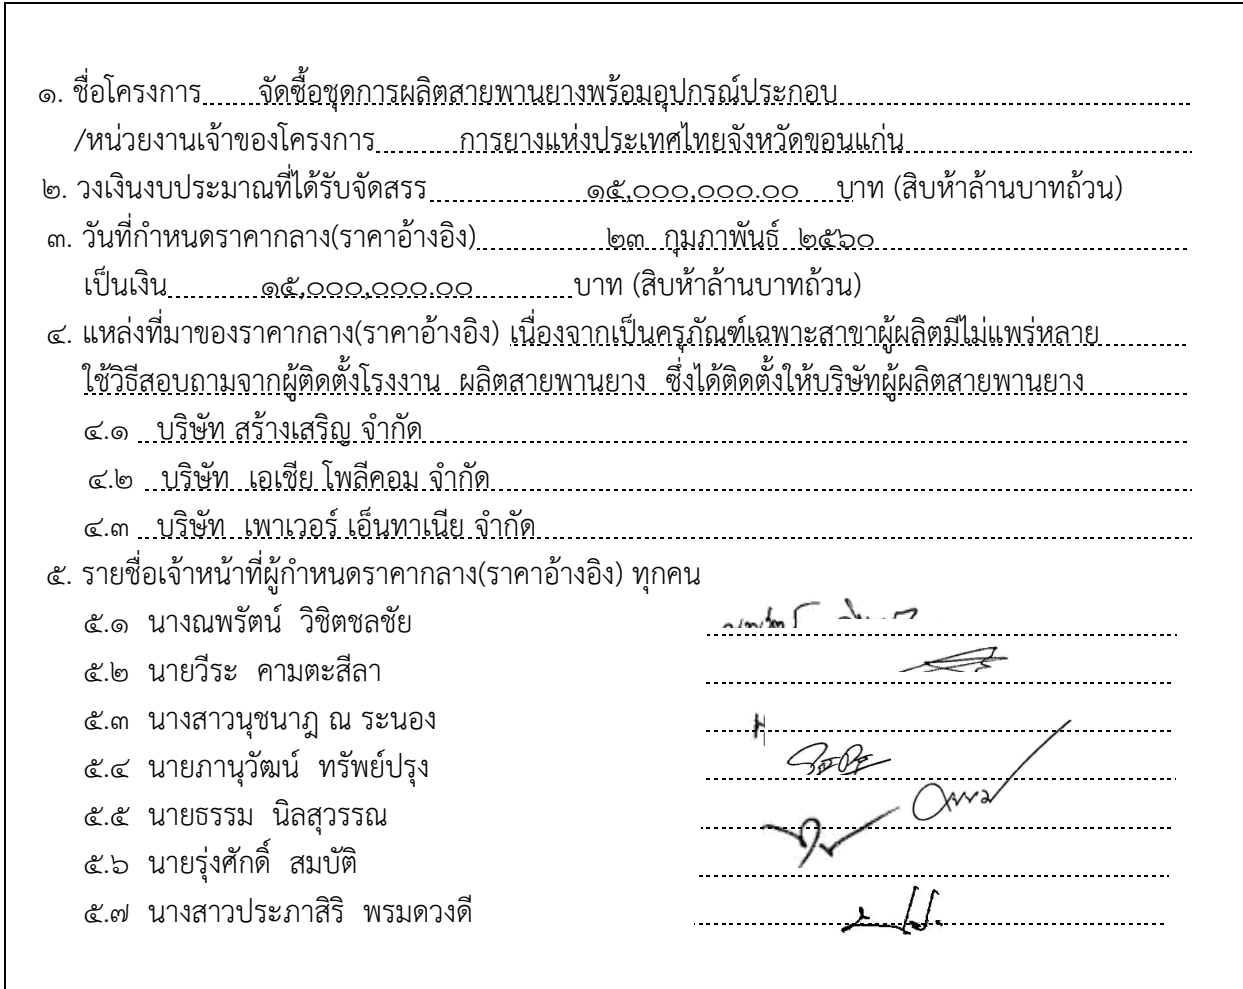 ๑. ชื่อโครงการ จัดซื้อชุดการผลิตสายพานยางพร้อมอุปกรณ์ประกอบ
/หน่วยงานเจ้าของโครงการ การยางแห่งประเทศไทยจังหวัดขอนแก่น
๒. วงเงินงบประมาณที่ได้รับจัดสรร ๑๕,๐๐๐,๐๐๐.๐๐ บาท (สิบห้าล้านบาทถ้วน)
๓. วันที่กำหนดราคากลาง(ราคาอ้างอิง) ๒๓ กุมภาพันธ์ ๒๕๖๐
เป็นเงิน ๑๕,๐๐๐,๐๐๐.๐๐ บาท (สิบห้าล้านบาทถ้วน)
๔. แหล่งที่มาของราคากลาง(ราคาอ้างอิง) เนื่องจากเป็นครุภัณฑ์เฉพาะสาขาผู้ผลิตมีไม่แพร่หลาย
ใช้วิธีสอบถามจากผู้ติดตั้งโรงงาน ผลิตสายพานยาง ซึ่งได้ติดตั้งให้บริษัทผู้ผลิตสายพานยาง
๔.๑ บริษัท สร้างเสริญ จำกัด
๔.๒ บริษัท เอเชีย โพลีคอม จำกัด
๔.๓ บริษัท เพาเวอร์ เอ็นทาเนีย จำกัด
๕. รายชื่อเจ้าหน้าที่ผู้กำหนดราคากลาง(ราคาอ้างอิง) ทุกคน
๕.๑ นางณพรัตน์ วิชิตชลชัย
๕.๒ นายวีระ คามตะสีลา
๕.๓ นางสาวนุชนาฎ ณ ระนอง
๕.๔ นายภานุวัฒน์ ทรัพย์ปรุง
๕.๕ นายธรรม นิลสุวรรณ
๕.๖ นายรุ่งศักดิ์ สมบัติ
๕.๗ นางสาวประภาสิริ พรมดวงดี